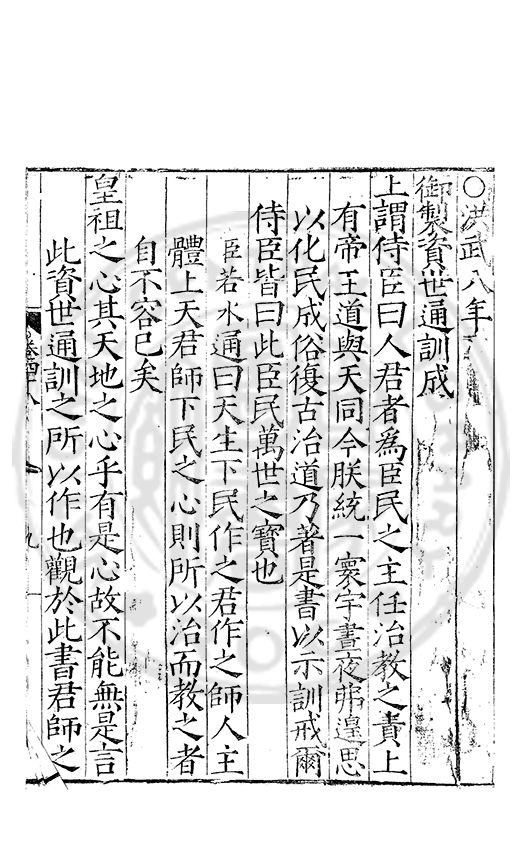 ○洪武八年
御製資世通訓成
上謂侍臣曰人君者為臣民之主任治教之責上
有帝王道與天同今朕統一寰宇晝夜弗遑思
以化民成俗復古治道乃著是書以示訓戒爾
侍臣皆曰此臣民萬世之寶也
臣若水通曰天生下民作之君作之師人主
體上天君師下民之心則所以治而教之者
自不容已矣
皇祖之心其天地之心乎有是心故不能無是言
此資世通訓之所以作也觀於此書君師之
卷四十八
九